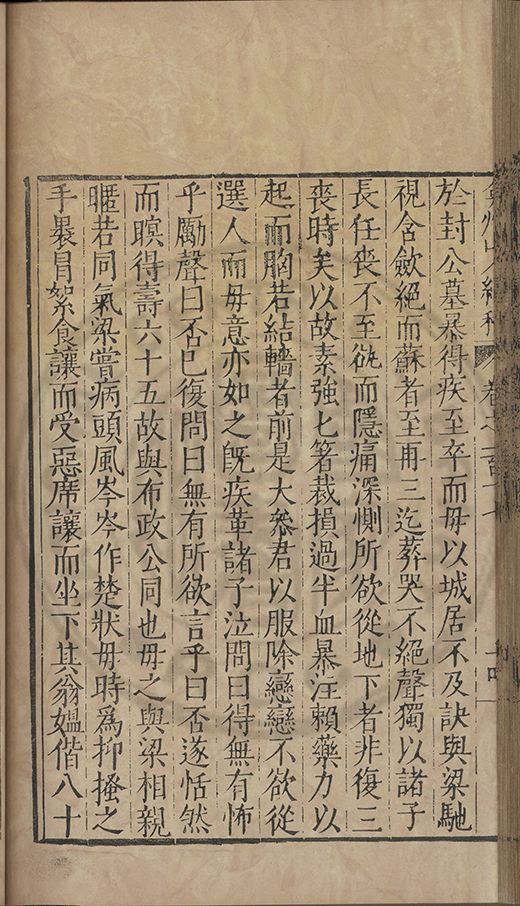 於封公墓暴得疾至卒而毋以城居不及訣與梁馳
視含斂絕而蘇者至再三迄葬哭不絕聲獨以諸子
長任喪不至毀而隱痛深惻所欲從地下者非復三
喪時矣以故素強匕箸裁損過半血暴注賴藥力以
起而胸若結轖者前是大參君以服除戀戀不欲從
選人而毋意亦如之既疾革諸子泣問曰得無有怖
乎勵聲曰否已復問曰無有所欲言乎曰否遂恬然
而瞑得壽六十五故與布政公同也毋之與梁相親
暱若同氣梁嘗病頭風岑岑作楚狀毋時為抑搔之
手㬥冒絮食讓而受惡席讓而坐下其翁媼偕八十